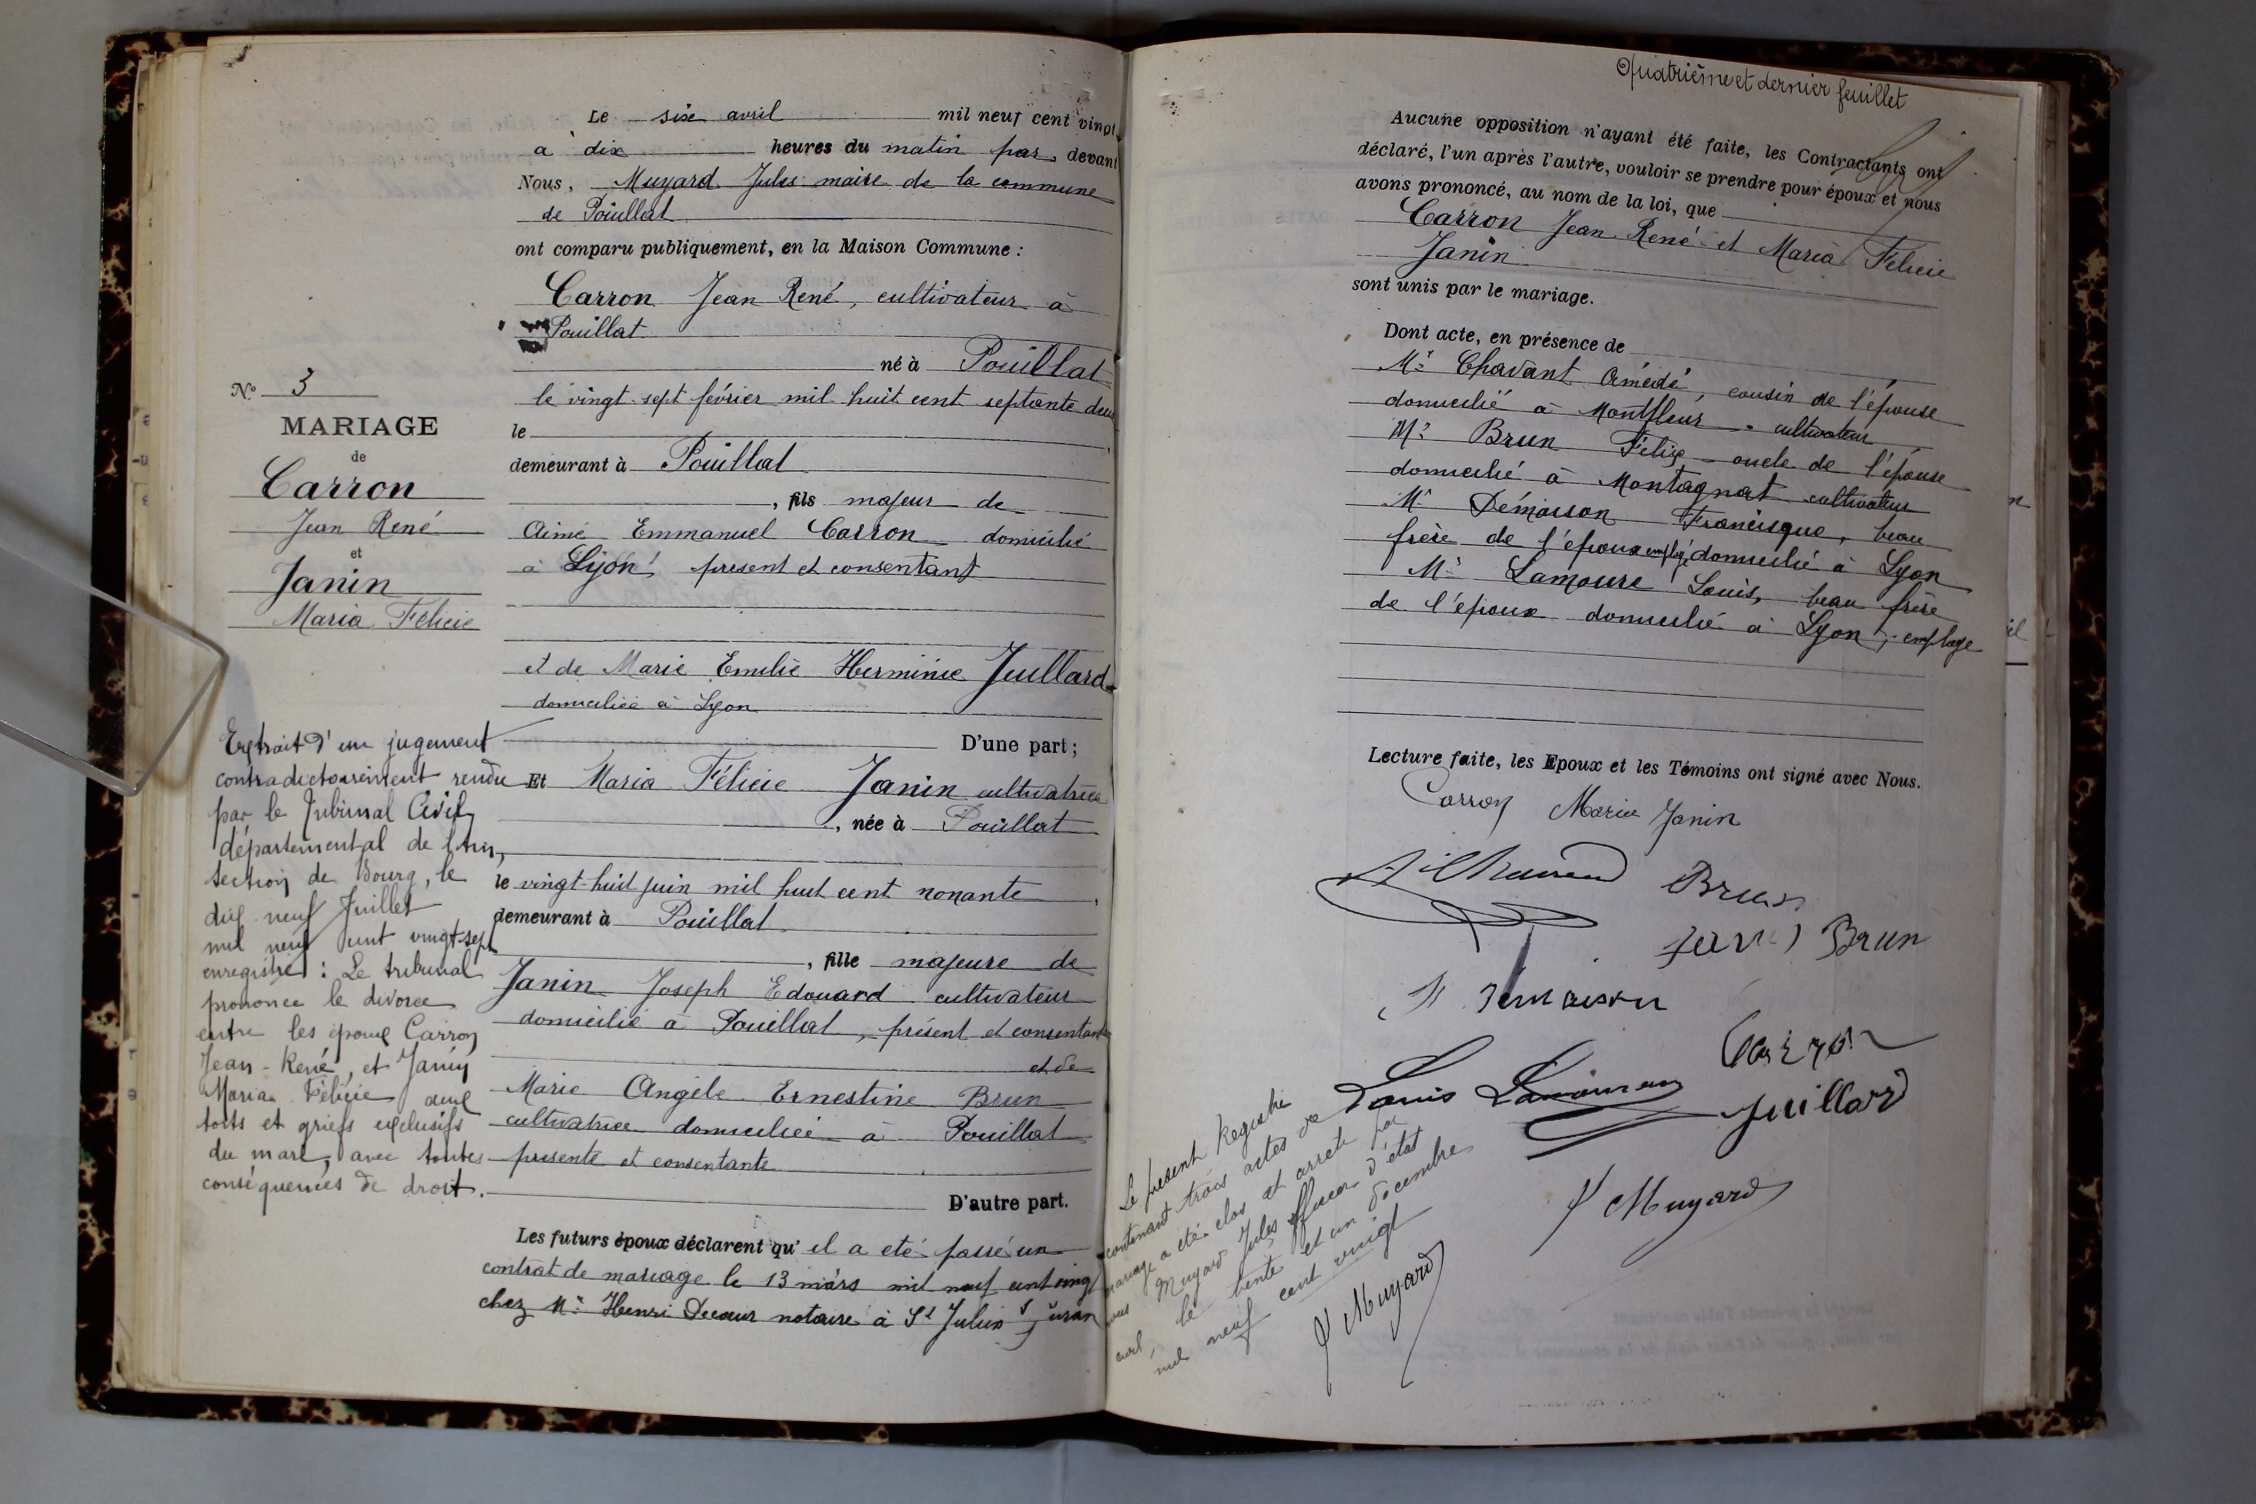 Le six avril mil neuf cent vingt
à dix heures du matin par devant
Nous, Muyard Jules maire de la commune
de Pouillat
ont comparu publiquement, en la Maison Commune :
Carron Jean René, cultivateur à
Pouillat
né à Pouillat
le vingt-sept février mil huit cent septante deux
le
demeurant à Pouillat
, fils majeur de
Aimé Emmanuel Carron domicilié
à Lyon présent et consentant
et de Marie Emilie Herminie Juillard
domiciliée à Lyon
D'une part ;
Et Maria Félicie Janin cultivatrice
, née à Pouillat
le vingt-huit juin mil huit cent nonante
demeurant à Pouillat
, fille majeure de
Janin Joseph Edouard cultivateur
domicilié à Pouillat, présent et consentant
et de
Marie Angèle Ernestine Brun
cultivatrice domiciliée à Pouillat
présente et consentante
D'autre part.
Les futurs époux déclarent qu'il a été passé un
contrat de mariage le 13 mars mil neuf cent vingt
chez Mr Henri Decœur notaire à St Julien s/ Suran
N° 3
MARIAGE
de
Carron
Jean René
et
Janin
Maria Félicie
Extrait d'un jugement
contradictoirement rendu
par le Tribunal Civil
départemental de l'Ain,
section de Bourg, le
dix-neuf Juillet
mil neuf cent vingt-sept
enregistré : Le tribunal
prononce le divorce
entre les époux Carron
Jean-René, et Janin
Maria Félicie aux
torts et griefs exclusifs
du mari, avec toutes
conséquences de droit.
Quatrième et dernier feuillet
Aucune opposition n'ayant été faite, les Contractants ont
déclaré, l'un après l'autre, vouloir se prendre pour époux et nous
avons prononcé, au nom de la loi, que
Carron Jean René et Maria Félicie
Janin
sont unis par le mariage.
Dont acte, en présence de
Mr Chavant Amédé, cousin de l'épouse
domicilié à Montfleur cultivateur
Mr Brun Félix oncle de l'épouse
domicilié à Montagnat cultivateur
Mr Démaison Francisque, beau
frère de l'époux employé domicilié à Lyon
Mr Lamoure Louis, beau frère
de l'époux domicilié à Lyon, employé
Lecture faite, les Epoux et les Témoins ont signé avec Nous.
Carron Maria Janin
Brun
Brun
Démaison
Carron
Louis Lamoure
Juillard
J Muyard
Le présent Registre
contenant trois actes de
mariage a été clos et arrêté par
nous Muyard Jules officier d'état
civil, le trente et un décembre
mil neuf cent vingt
J Muyard